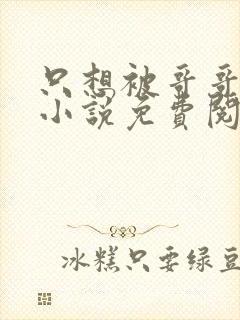 只想被哥哥
小说免费阅
冰糕只要绿豆